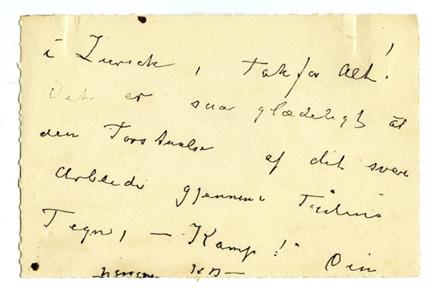 i Zurich, Tak for Alt!
Det er saa glædeligt at
den Forstaaelse af dit svære
Arbeide gjennem Tidens
Tegn, — Kamp! Din